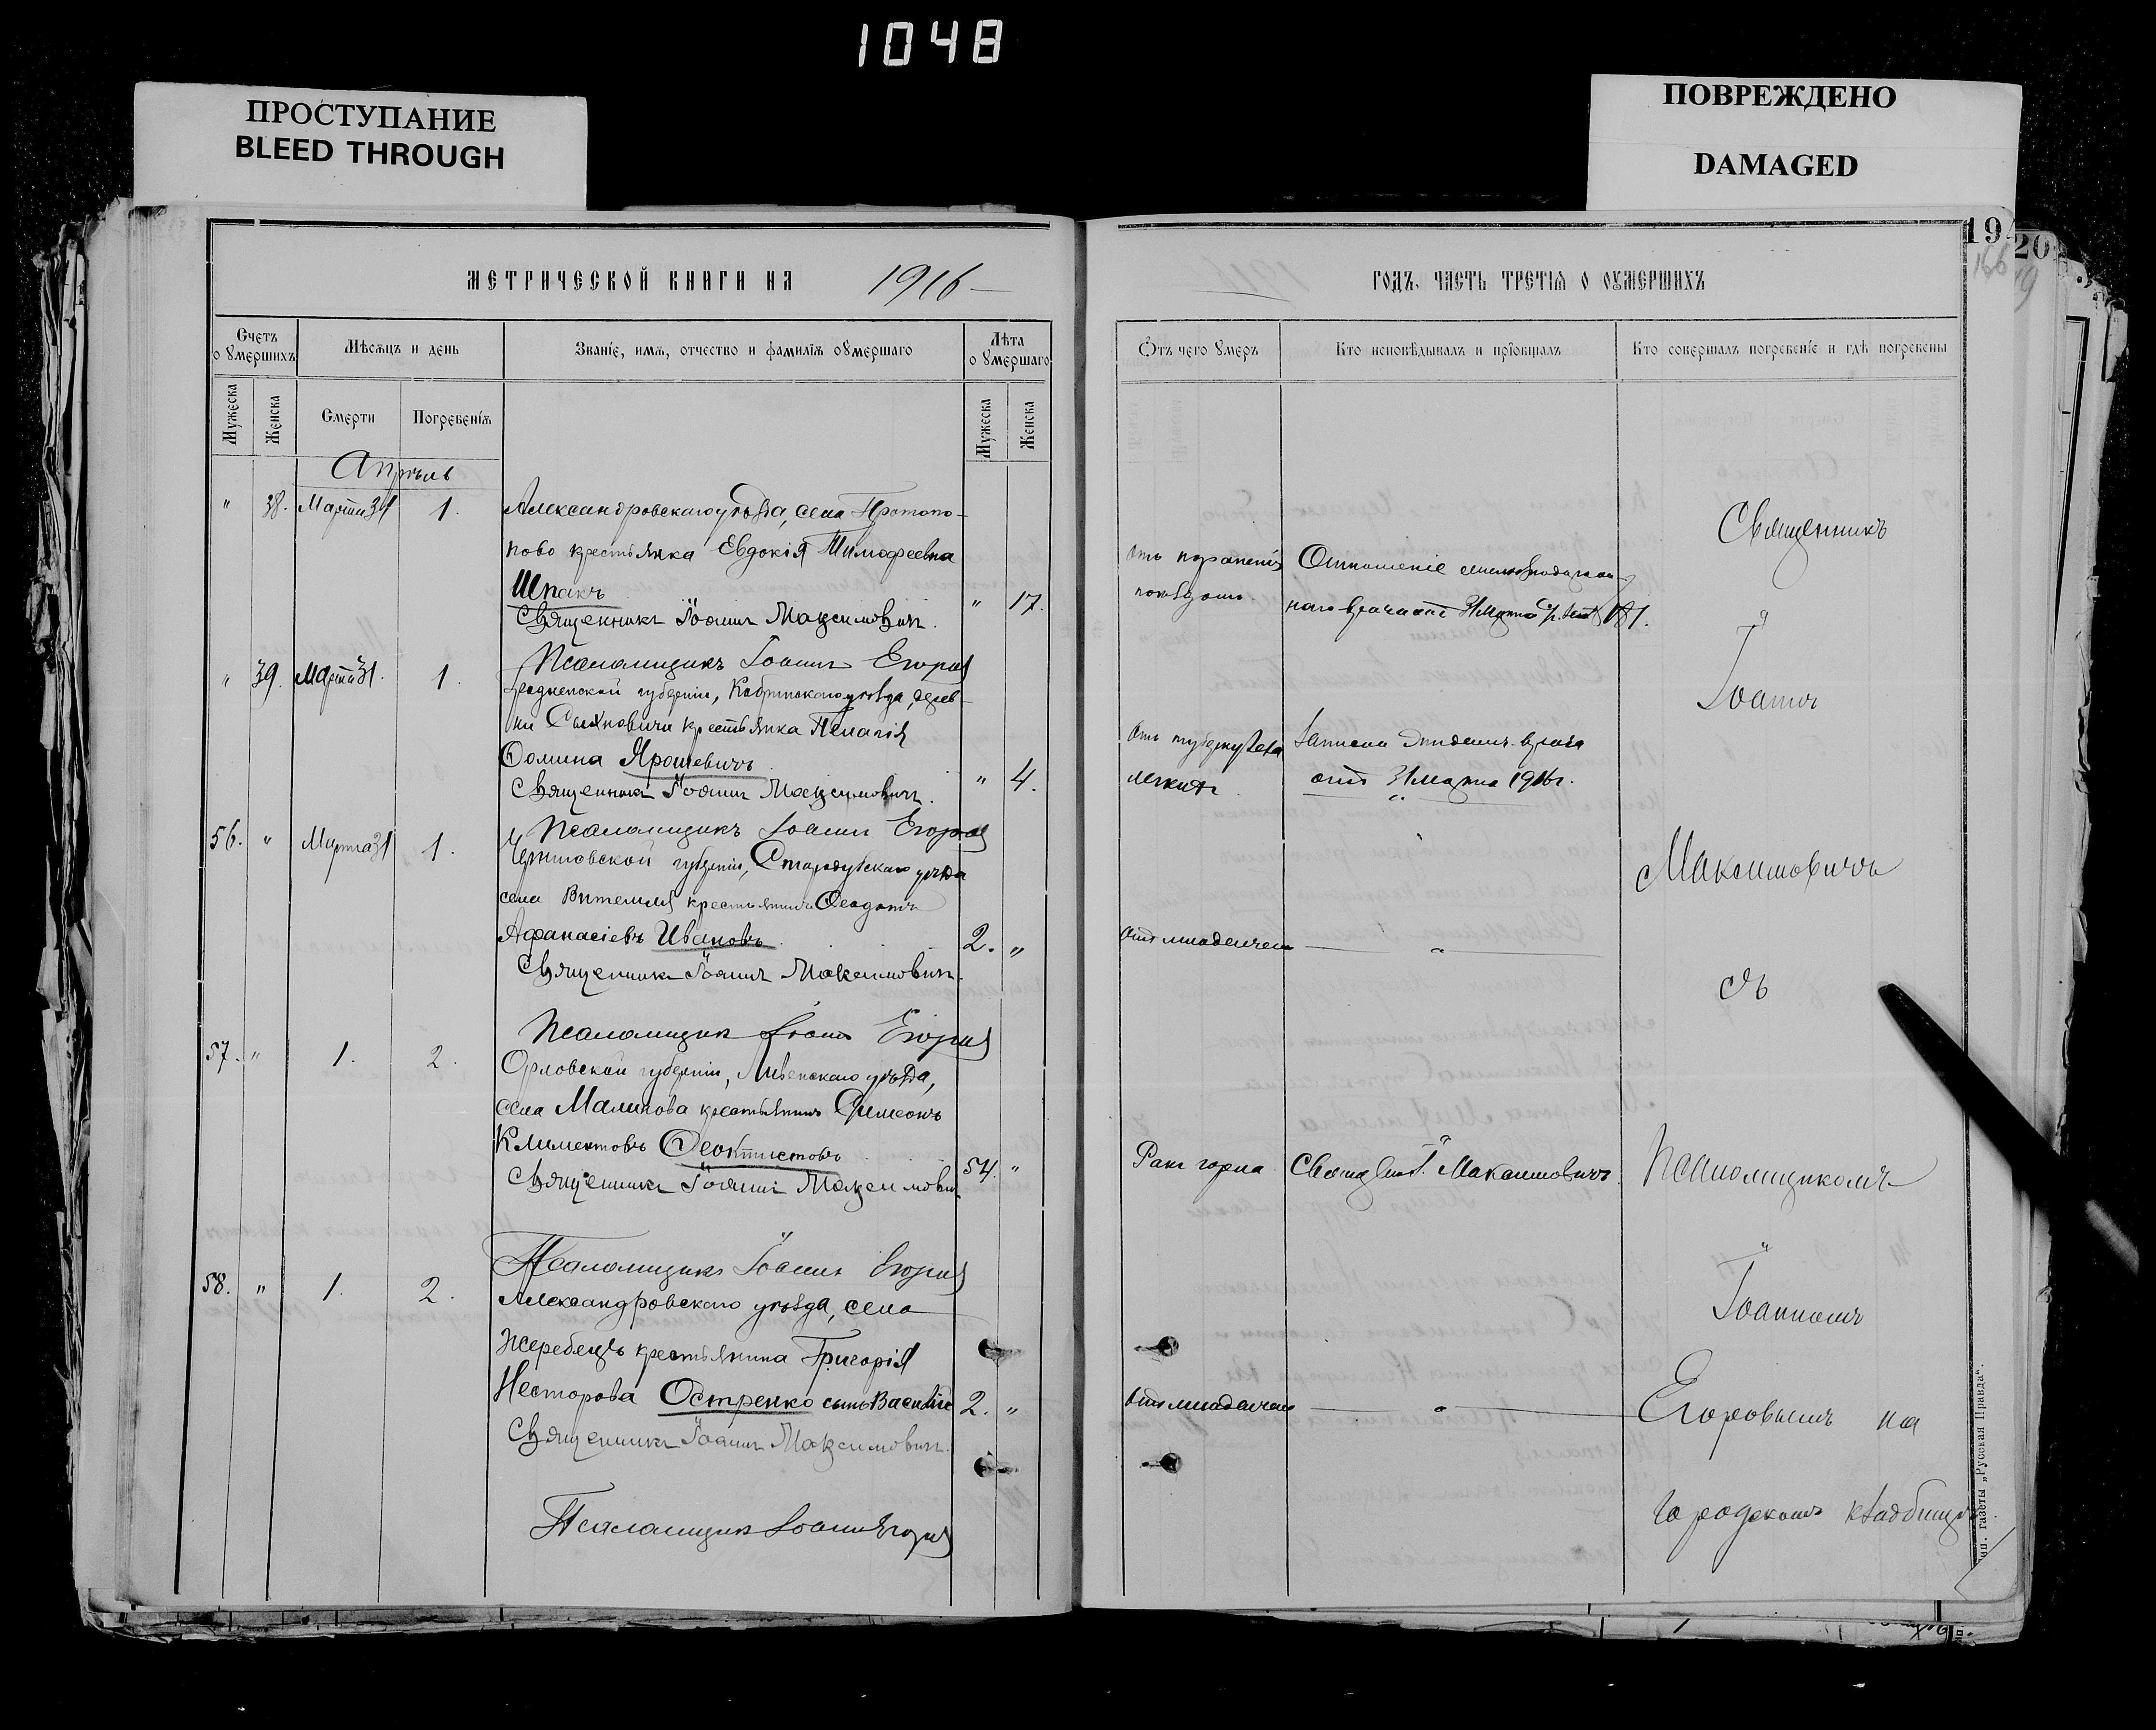 1048
ПРОСТУПАНИЕ
BLEED THROUGH
ПОВРЕЖДЕНО
DAMAGED
МЕТРИЧЕСКОЙ КНИГИ НА 1916
Счетъ
оумершихъ
Мѣсяцъ и день
Званіе, имя, отчество и фамилія оумершаго
Лѣта
оумершаго
Мужеска
Женска
Смерти
Погребенія
Мужеска
Женска
Апрѣль
" 38. Марта 31 1. Александровскаго уѣзда, села Протопо-
пово крестьянка Евдокія Тимофеевна
Шпакъ " 17.
Священникъ Іоаннъ Максимовичъ.
Псаломщикъ Іоаннъ Егоровъ
" 39. Марта 31. 1. Гродненской губерніи, Кобринскаго уѣзда, дерев-
ни крестьянка Пелагія
Фомина Ярошевичъ " 4.
Священникъ Іоаннъ Максимовичъ.
Псаломщикъ Іоаннъ Егоровъ
56. " Марта 31 1. Черниговской губерніи, Стародубскаго уѣзда
села Витемля крестьянинъ Феодотъ
Афанасіевъ Ивановъ 2. "
Священникъ Іоаннъ Максимовичъ.
Псаломщикъ Іоаннъ Егоровъ
57. " 1. 2. Орловской губерніи, Ливенскаго уѣзда,
села Малинова крестьянинъ Симеонъ
Климентовъ Феоктистовъ 54. "
Священникъ Іоаннъ Максимовичъ
Псаломщикъ Іоаннъ Егоровъ
58. " 1. 2. Александровскаго уѣзда, села
Жеребецъ крестьянина Григорія
Несторова Остренко сынъ Василій 2. "
Священникъ Іоаннъ Максимовичъ.
Псаломщикъ Іоаннъ Егоровъ
19
20
ГОДЪ, ЧАСТЬ ТРЕТІЯ О ОУМЕРШИХЪ
Отъ чего умеръ
Кто исповѣдывалъ и пріобщалъ
Кто совершалъ погребеніе и гдѣ погребены
Отъ пораненія
поѣздомъ
Отношеніе
врача отъ 31 Марта
Отъ туберкулеза
легкихъ
Записка врача
отъ 31 марта 1916 г.
Отъ младенчес
"
Ракъ горла
Свящ. І. Максимовичъ.
Отъ младенчес
"
Священникъ
Іоаннъ
Максимовичъ
съ
Псаломщикомъ
Іоанномъ
Егоровымъ на
городскомъ кладбищѣ
Тип. газеты „Русская Правда“.